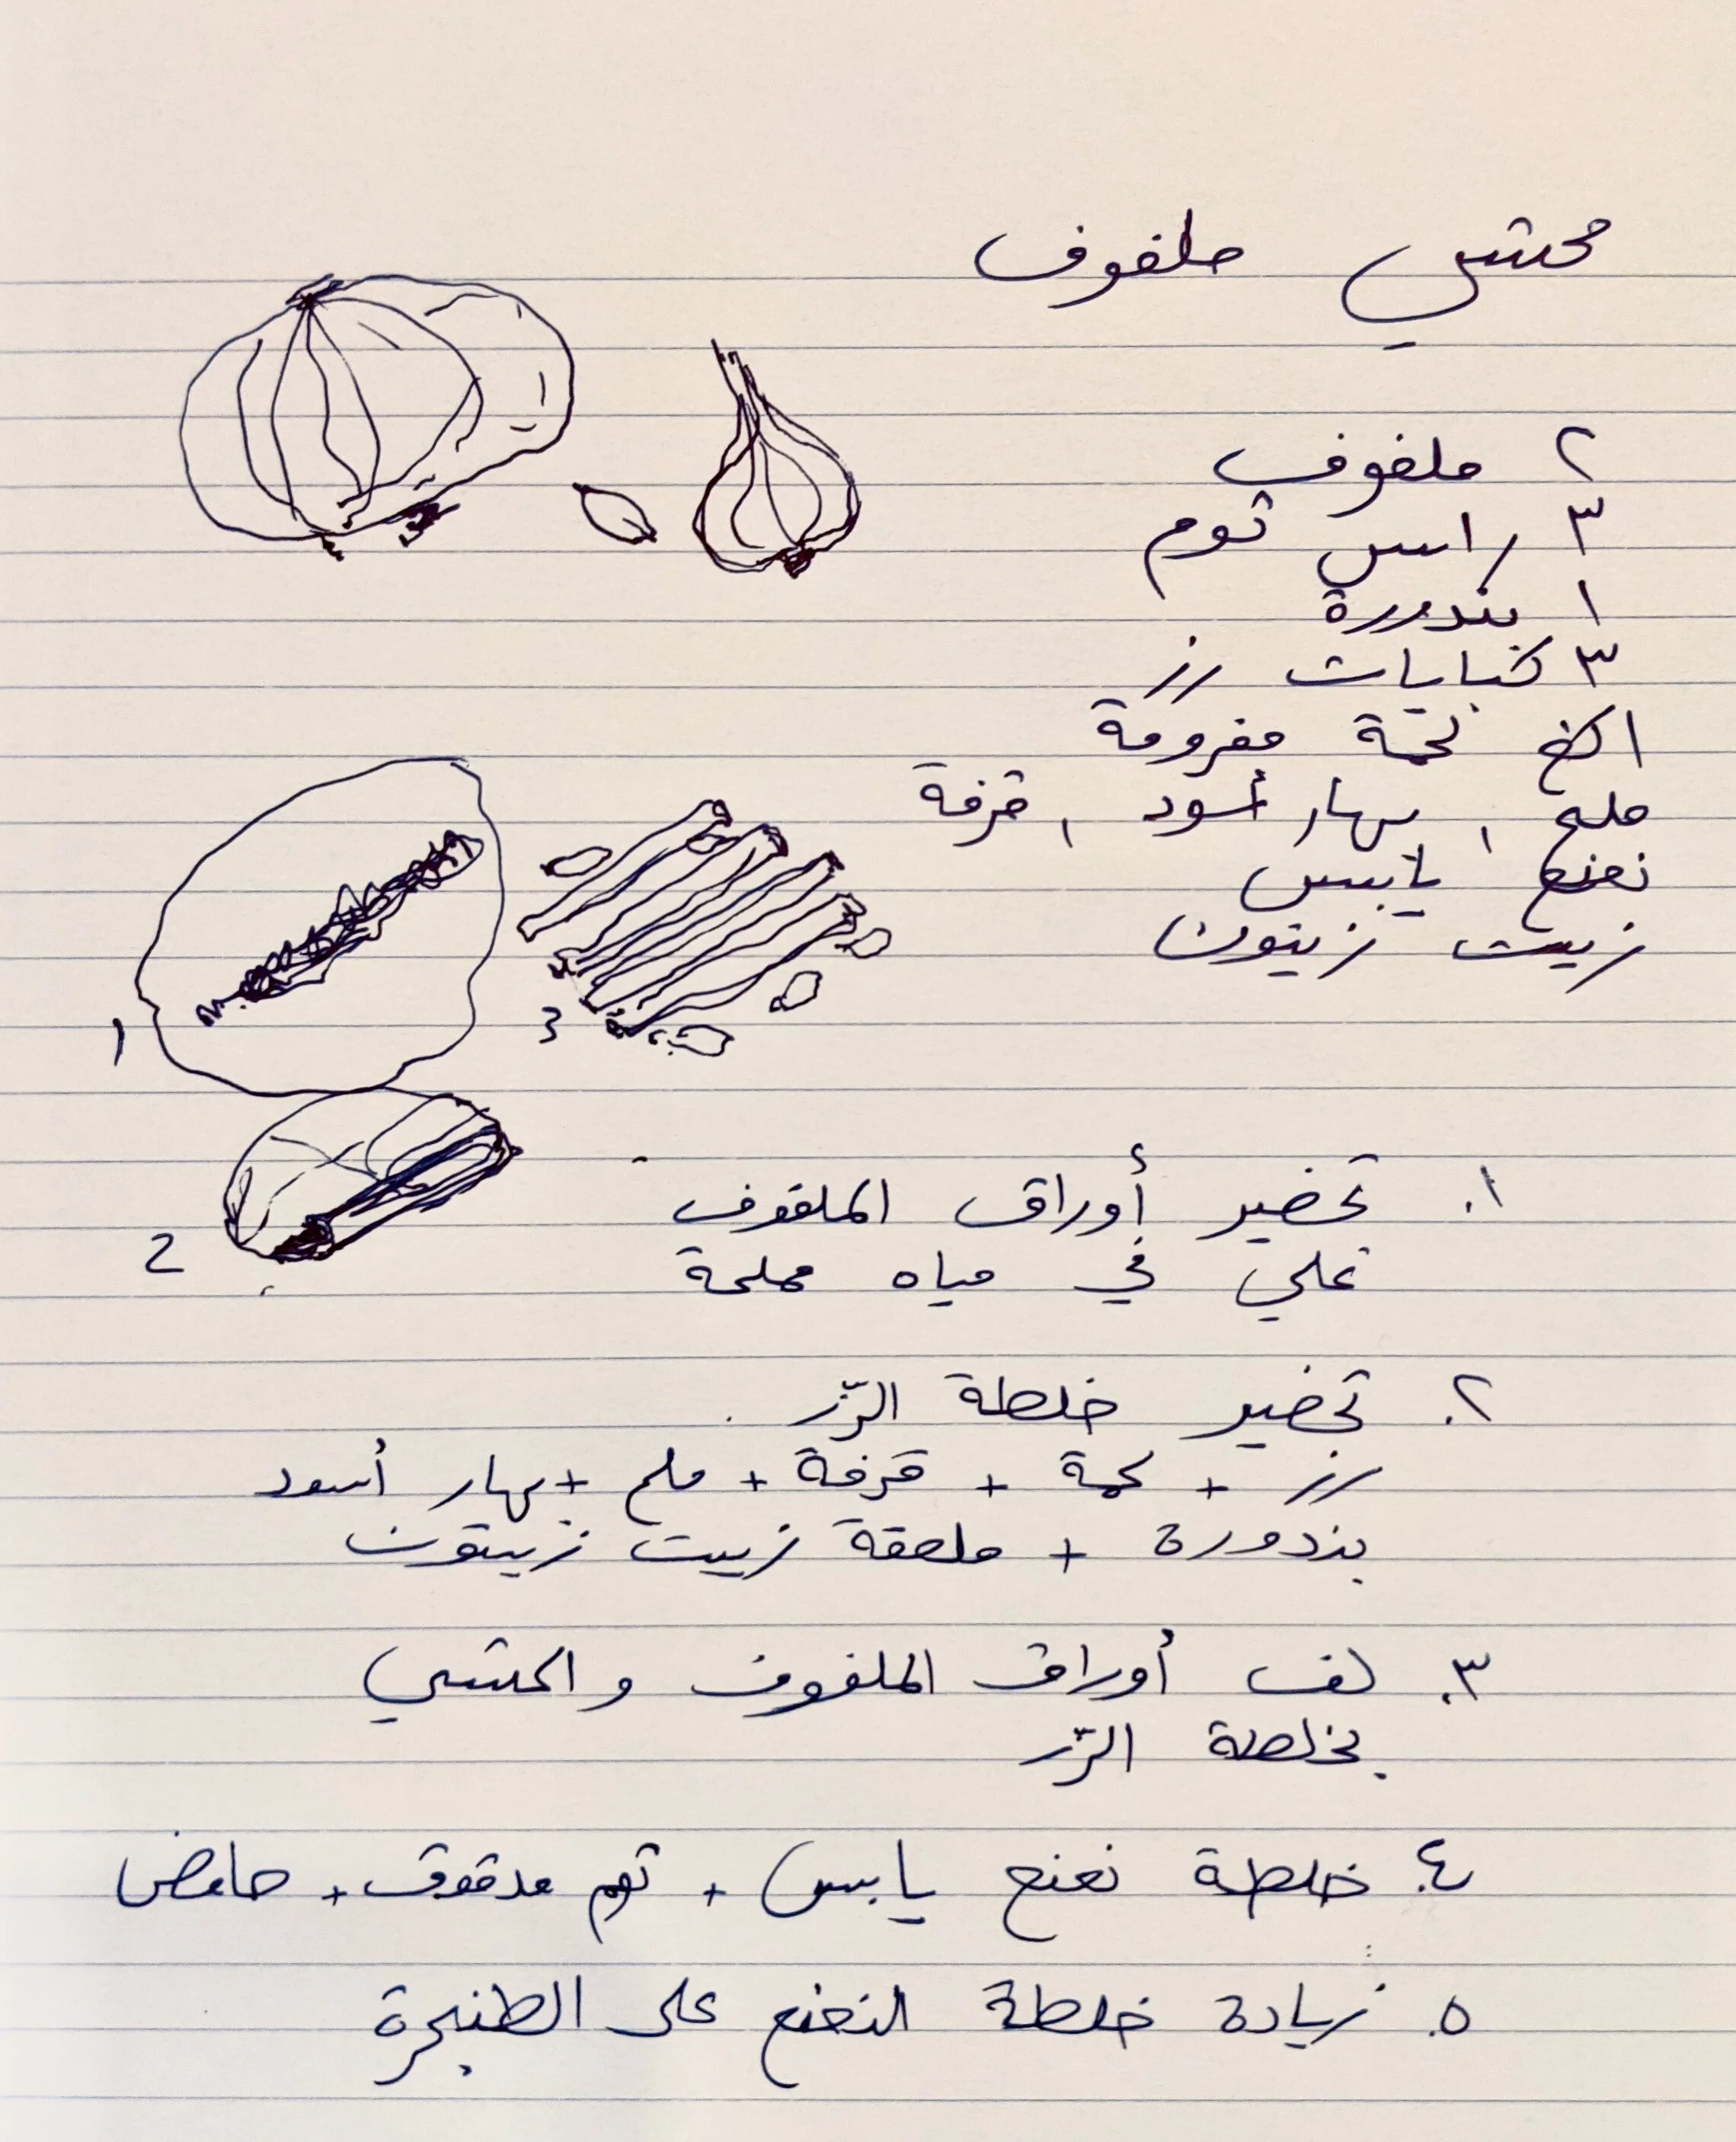 محشي ملفوف
٢ ملفوف
٣ راس توم
١ بندورة
٣ كبايات رز
١ كغ لحمة مفرومة
ملح ، بهار أسود ، قرفة
نعنع يابس
زيت زيتون
1
3
2
١. تحضير أوراق الملفوف
غلي في مياه مملحة
٢. تحضير خلطة الرّز
رز + لحمة + قرفة + ملح + بهار أسود
بندورة + ملعقة زيت زيتون
٣. لف أوراق الملفوف و الحشي
بخلطة الرّز
٤. خلطة نعنع يابس + توم مدقوق + حامض
٥. زيادة خلطة النعنع على الطنجرة